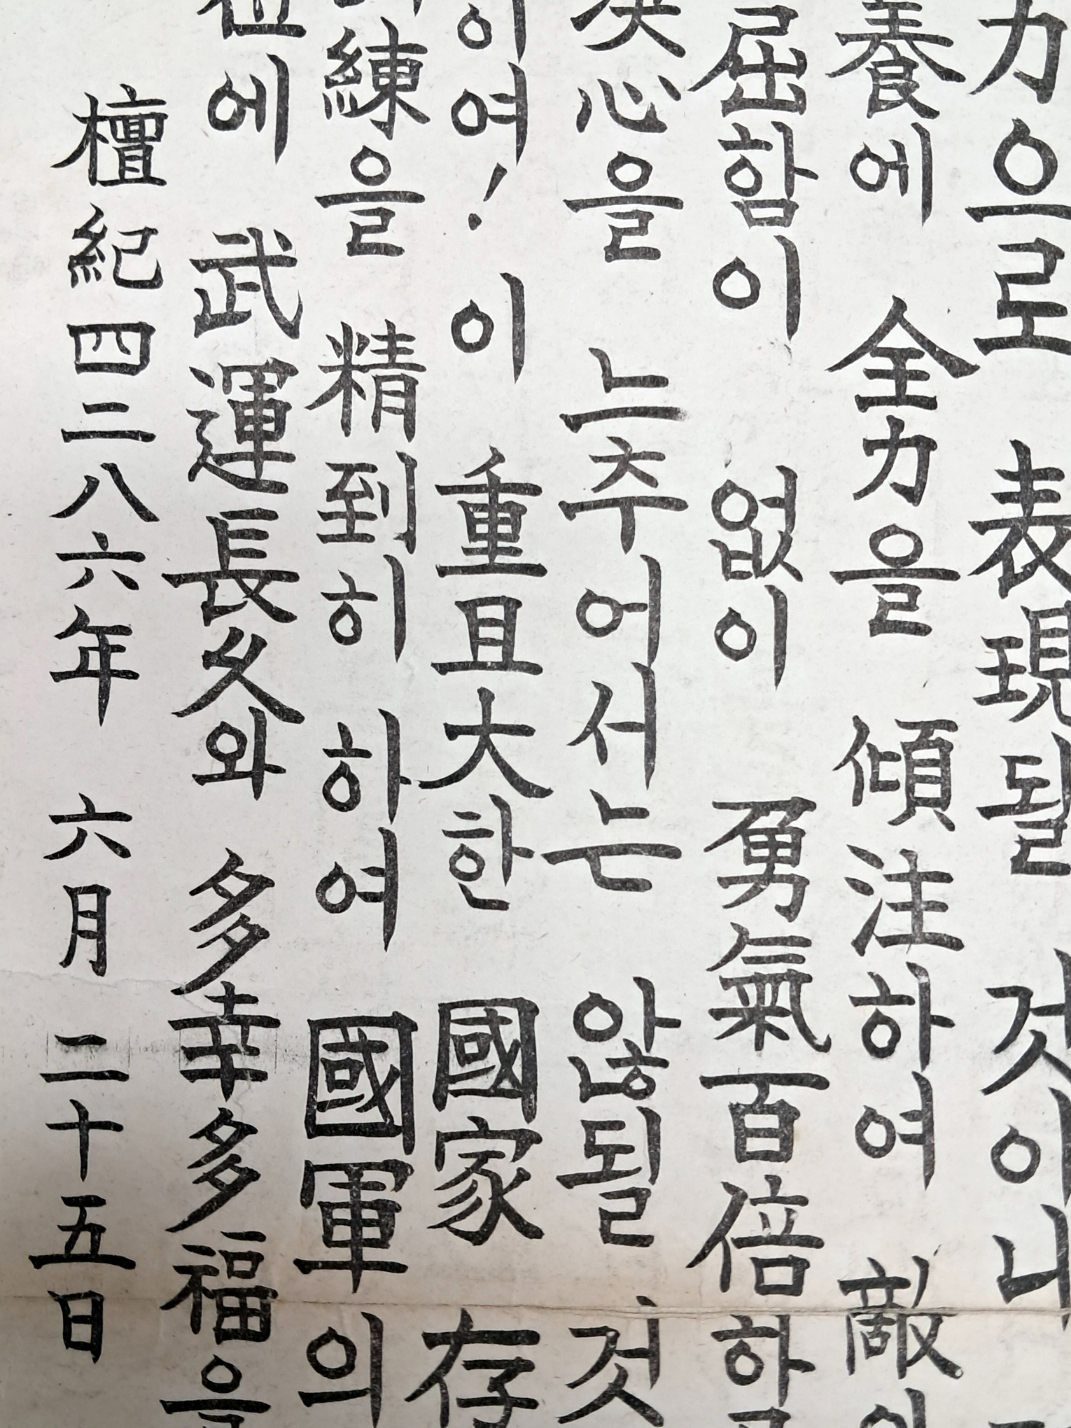 力으로 表現될 것이니
養에 全力을 傾注하여 敵
屈함이 없이 勇氣百倍하
決心을 느추어서는 않될 것
이여! 이 重且大한 國家 存
練을 精到히 하여 國軍의
에 武運長久와 多幸多福을
檀紀四二八六年 六月 二十五日